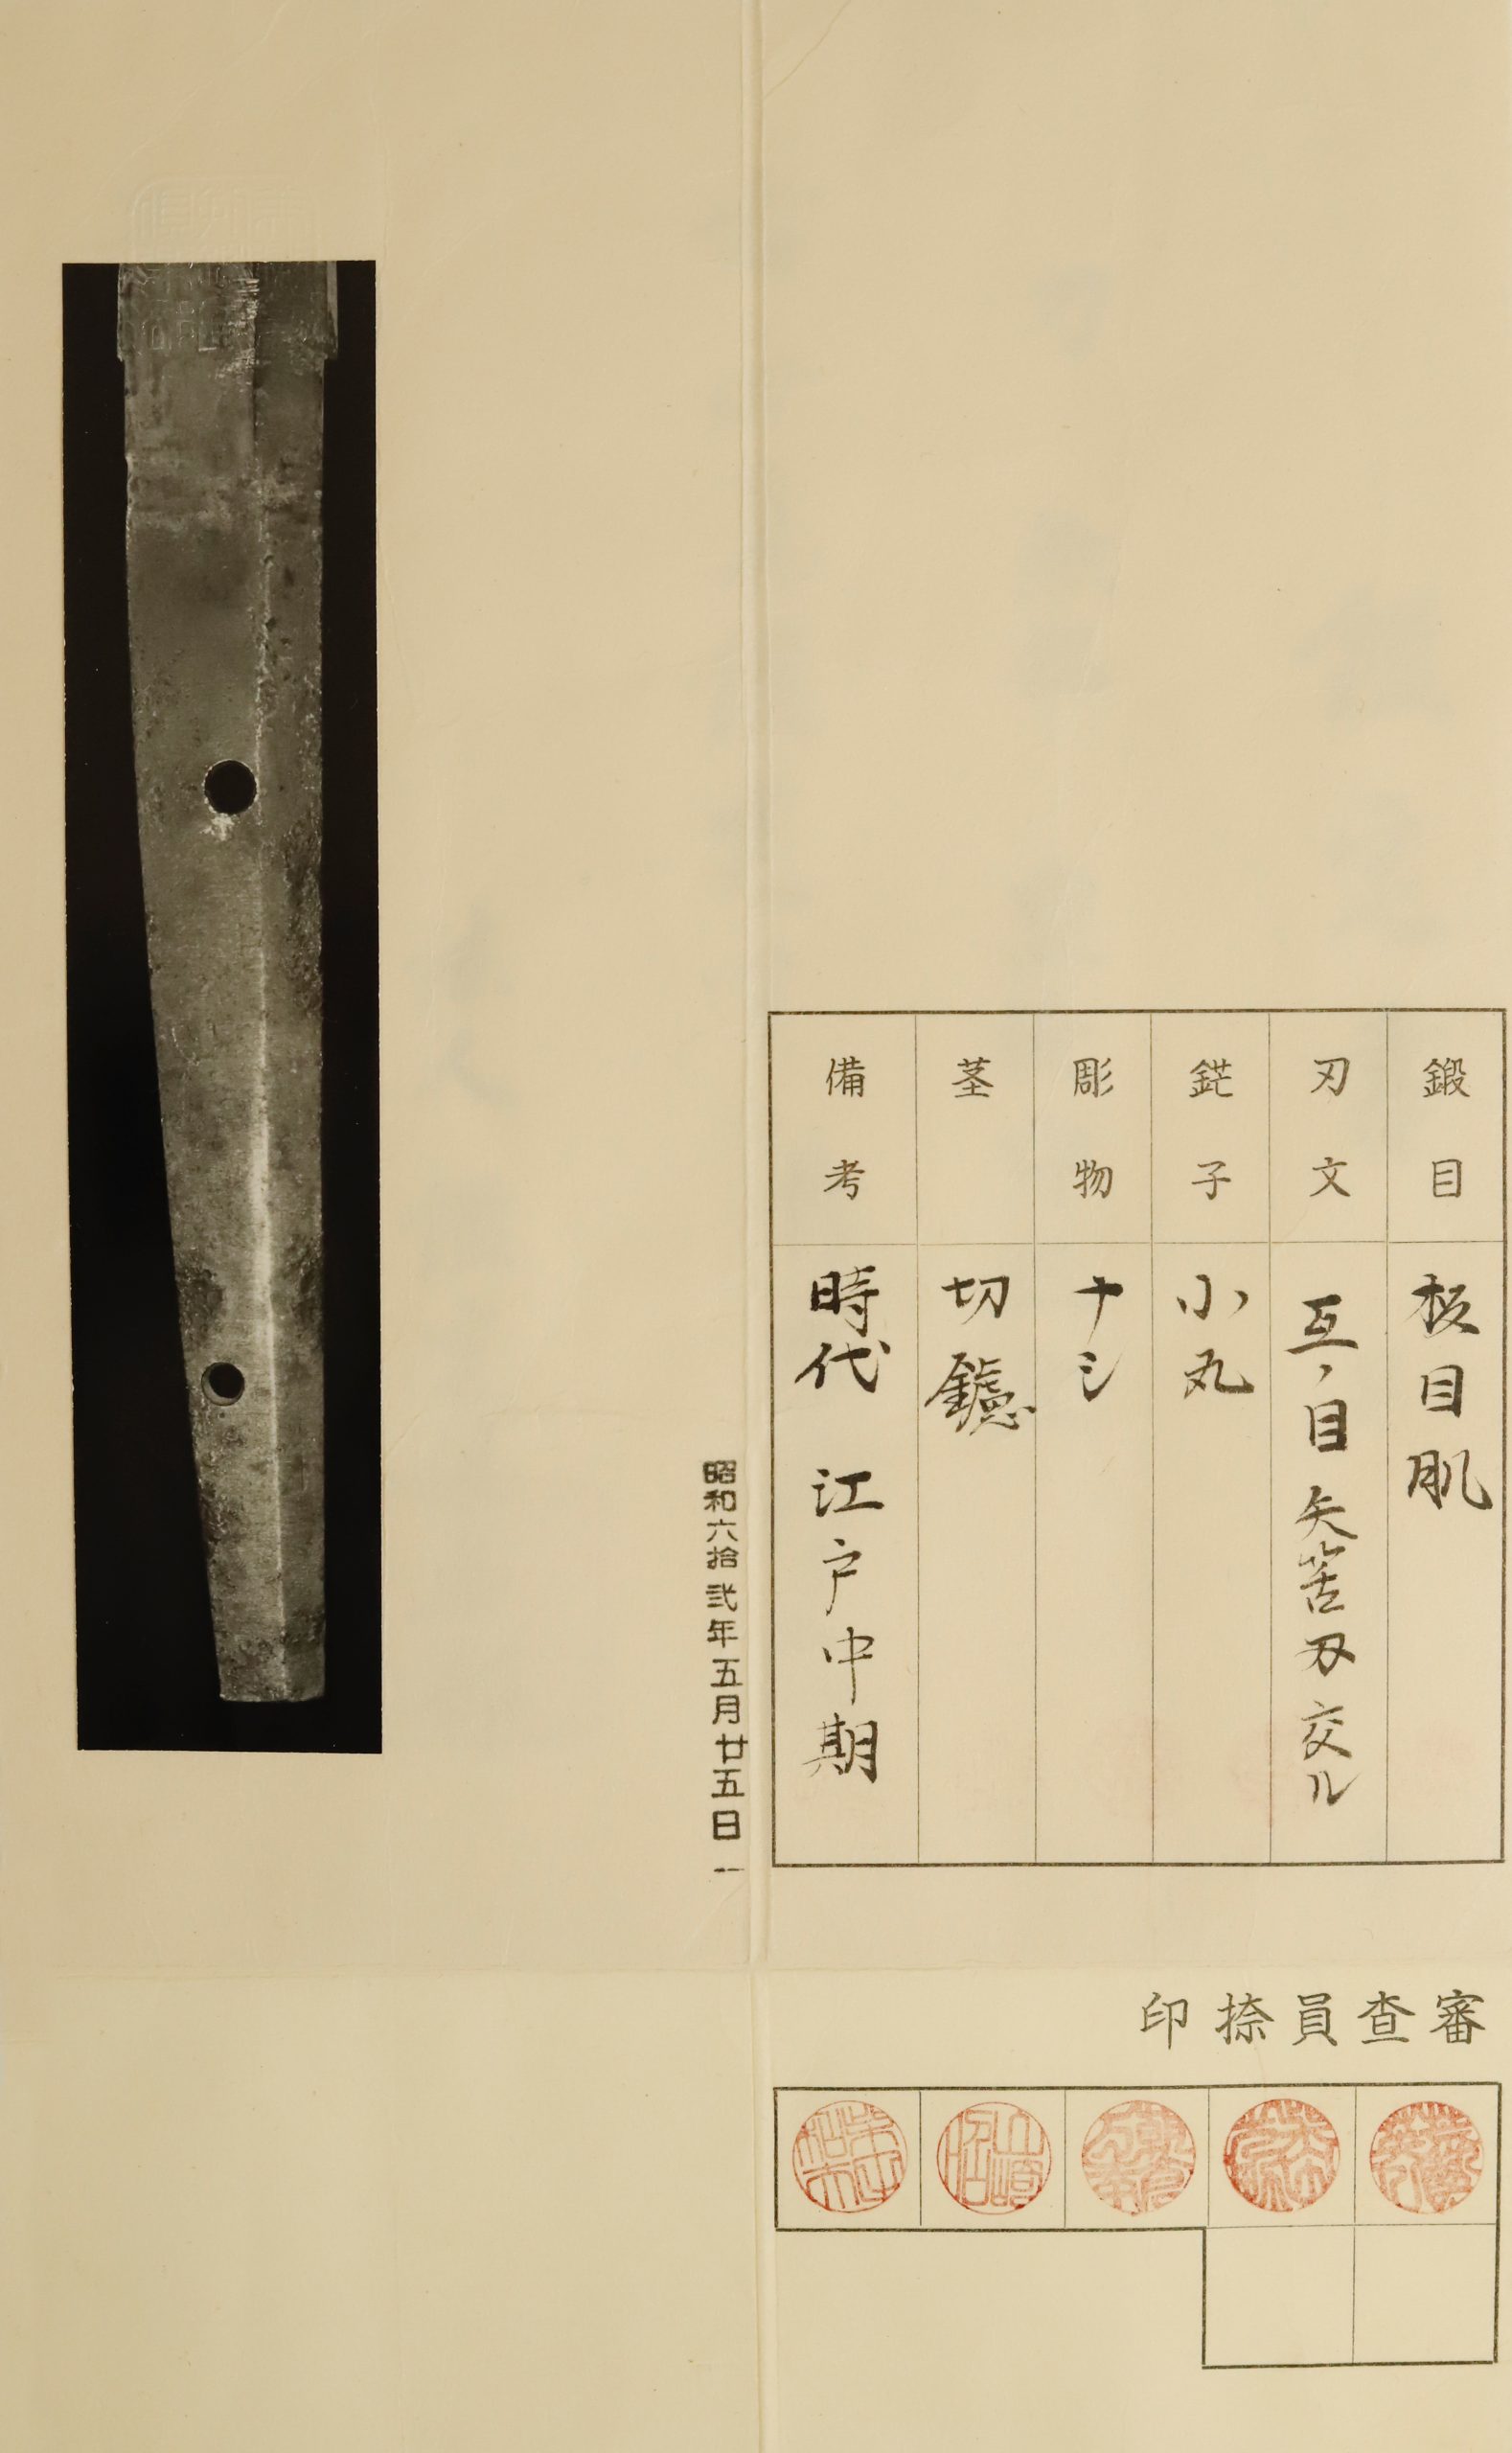 鍛目 板目肌
刃文 互ノ目矢筈刃交ル
鋩子 小丸
彫物 ナシ
茎 切鑢
備考 時代 江戸中期
昭和六拾弐年五月廿五日
審査員捺印